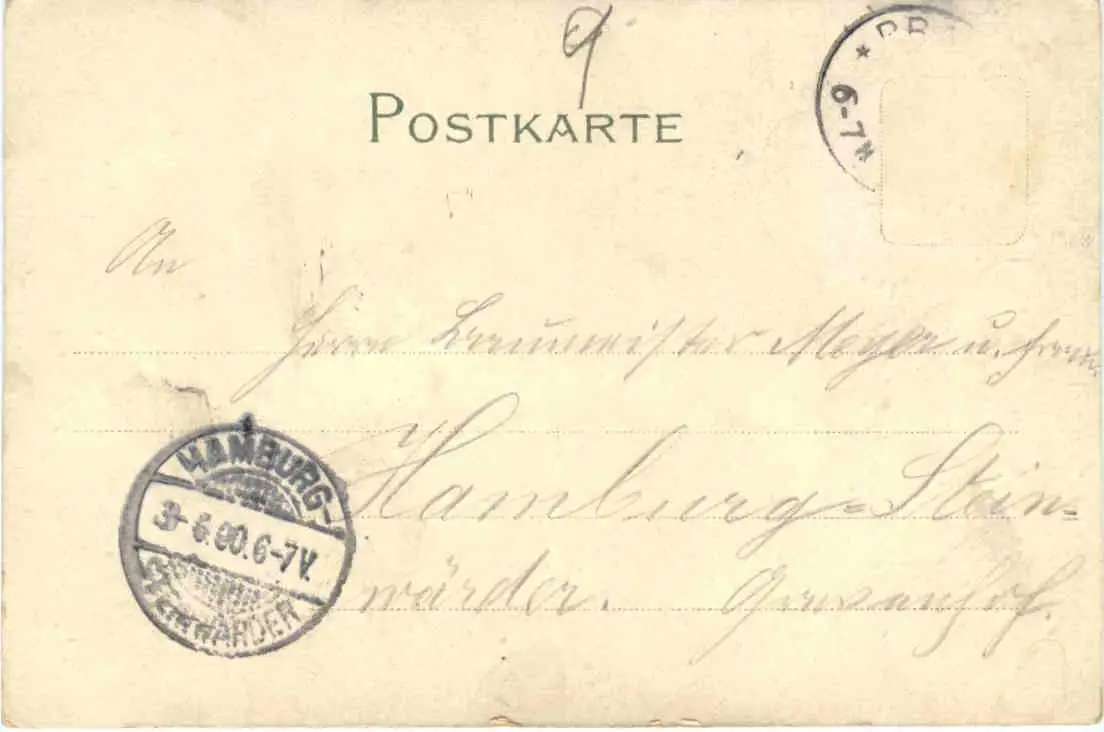 9
POSTKARTE
* BR
6-7N
An
Herrn Baumeister Meyer u. Frau
Hamburg=Stein=
wärder.
HAMBURG-
3-6.00.6-7V.
STEINWÄRDER